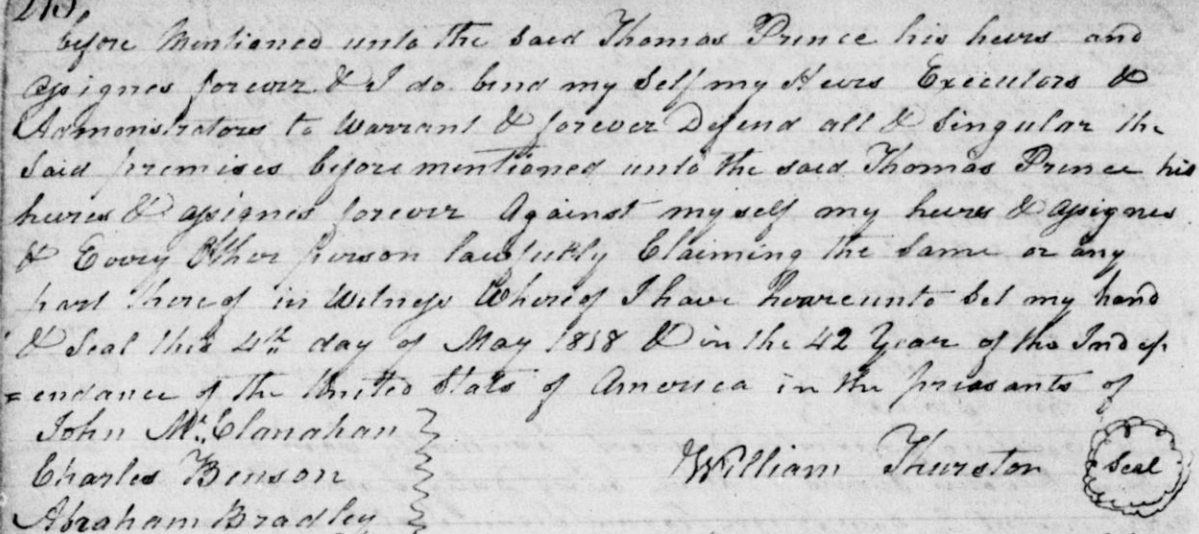 before Mentioned unto the said Thomas Prince his heirs and
assignes forever & I do bind my Self my Heirs Executors &
Admonstrators to Warrant & forever Defend all & Singular the
Said premises before mentioned unto the said Thomas Prince his
heires & assignes forever Against my self my heires & assignes
& Every Other person lawfully Claiming the Same or any
part thereof in Witness Whereof I have heareunto Set my hand
& Seal this 4th day of May 1818 & in the 42 Year of the Indep
=endance of the United States of America in the presants of
John Mc. Clanahan
Charles Benson
William Thurston Seal
Abraham Bradley